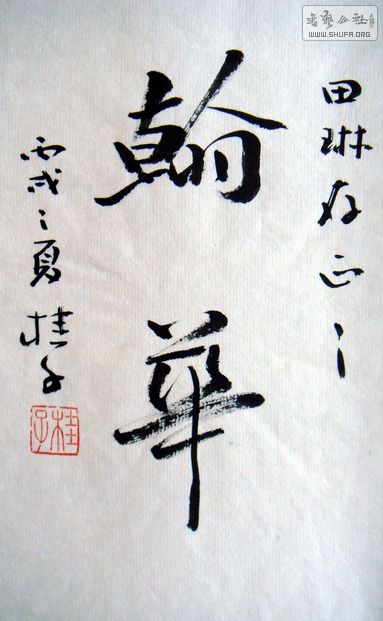 田琳存正之
翰華
丙戌之夏 桂子
桂子
書藝公社
WWW.SHUFA.ORG